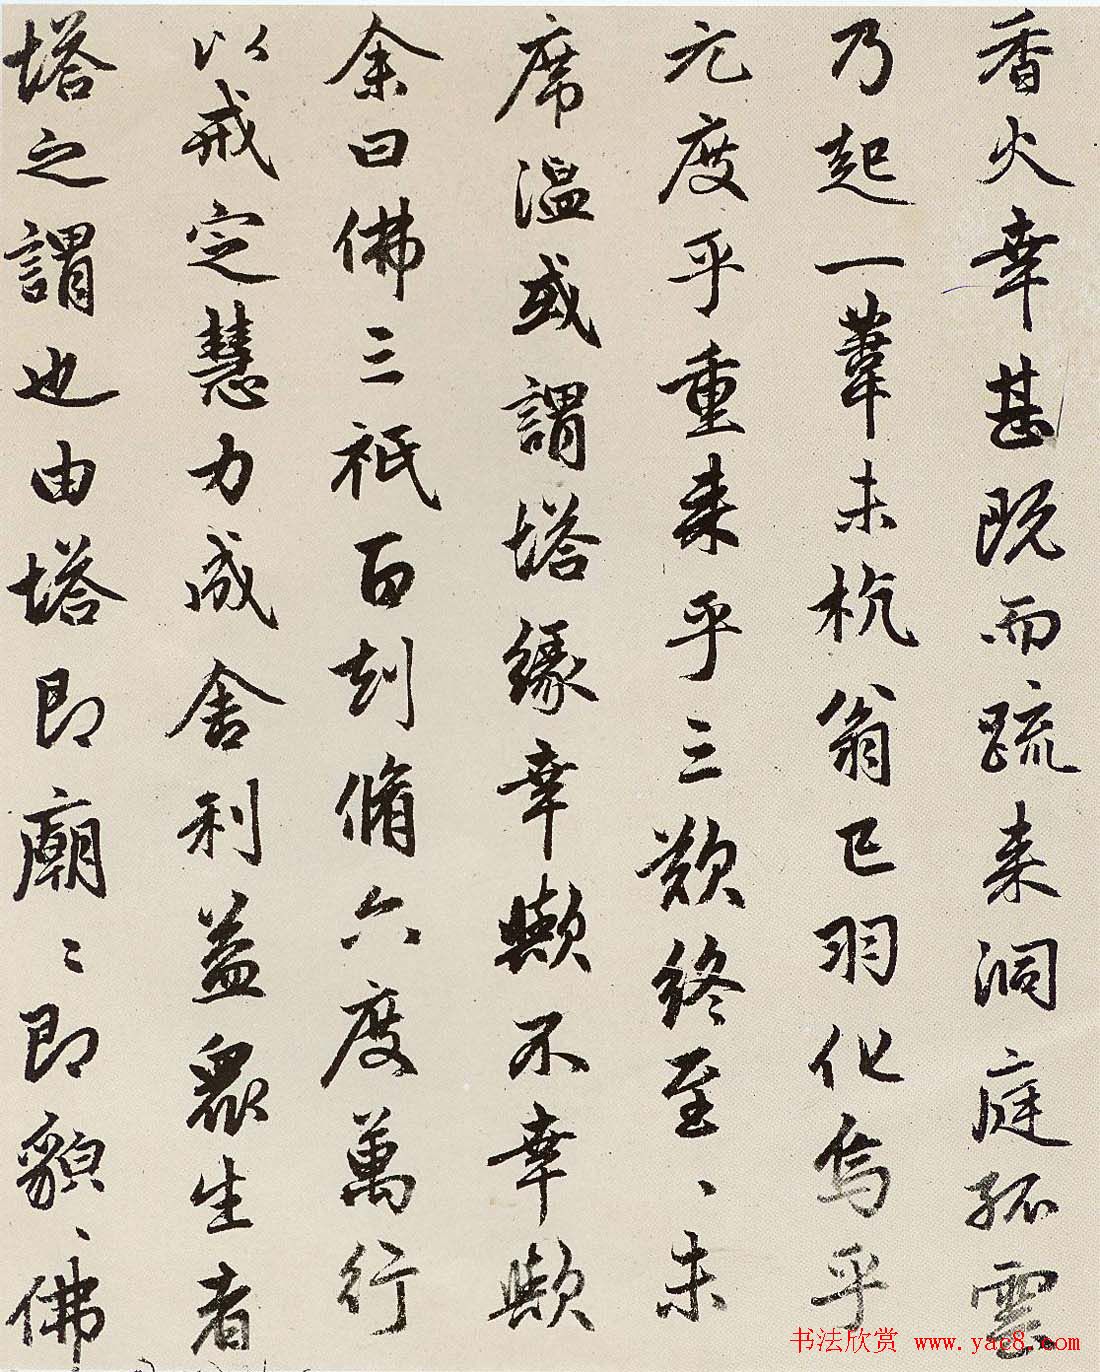 香火幸甚既而疏来洞庭孤雲
乃起一葦未杭翁已羽化烏乎
元度乎重来乎三歎終至〻未
席温或謂塔緣幸歟不幸歟
余曰佛三祇百刧脩六度萬行
以戒定慧力成舍利益衆生者
塔之謂也由塔即廟〻即貌〻佛
书法欣赏 www.yac8.com